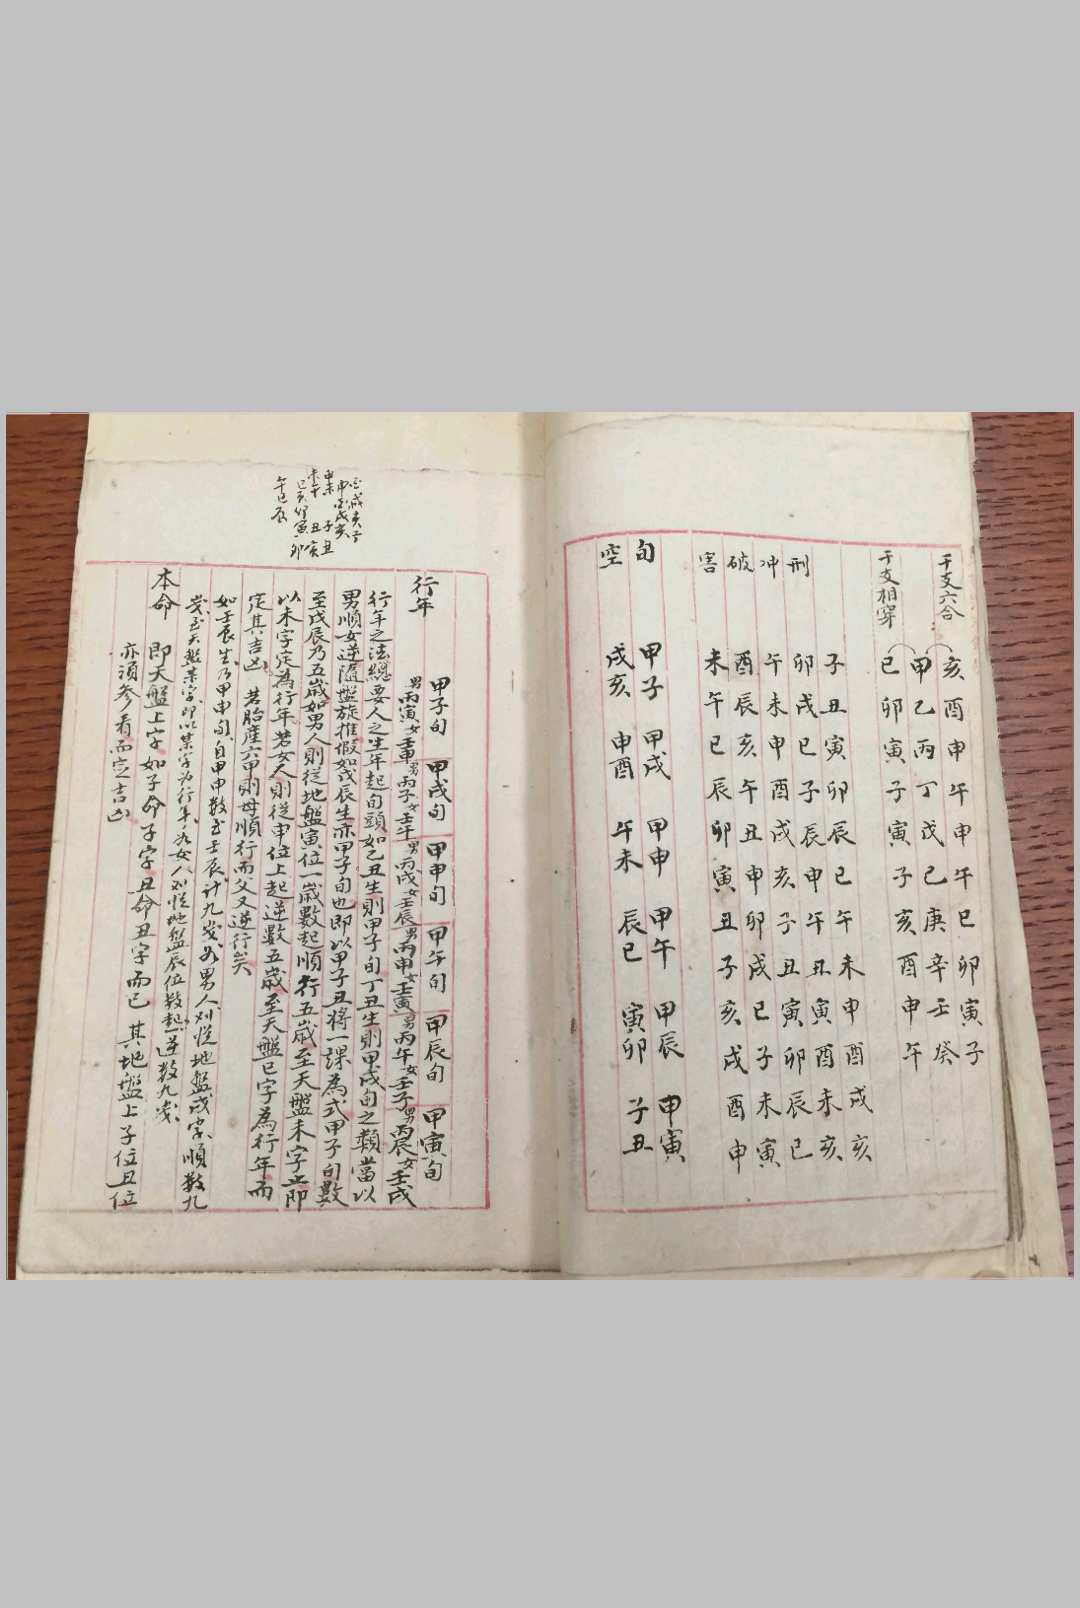 干支六合
亥酉申午申午巳卯寅子
甲乙丙丁戊己庚辛壬癸
干支相穿
巳卯寅子寅子亥酉申午
子丑寅卯辰巳午未申酉戌亥
刑 卯戌巳子辰申午丑寅酉未亥
冲 午未申酉戌亥子丑寅卯辰巳
破 酉辰亥午丑申卯戌巳子未寅
害 未午巳辰卯寅丑子亥戌酉申
旬 甲子 甲戌 甲申 甲午 甲辰 甲寅
空 戌亥 申酉 午未 辰巳 寅卯 子丑
行年
甲子旬 甲戌旬 甲申旬 甲午旬 甲辰旬 甲寅旬
男丙寅女壬申 男丙子女壬午 男丙戌女壬辰 男丙申女壬寅 男丙午女壬子 男丙辰女壬戌
行年之法總要人之生年起旬頭如乙丑生則甲子旬丁丑生則甲戌旬之類當以
男順女逆隨盤旋推假如戊辰生亦甲子旬也即以甲子丑將一課為式甲子旬數
至戊辰乃五歲如男人則從地盤寅位一歲數起順行五歲至天盤未字止即
以未字定為行年若女人則從申位上起逆數五歲至天盤巳字為行年而
定其吉凶 若胎產六甲則母順行而父又逆行矣
如壬辰生乃甲申旬自甲申數至壬辰計九歲如男人則從地盤戌字順數九
歲至天盤某字即以某字为行年如女人则從地盤辰位數起逆數九歲
本命 即天盤上字如子命子字丑命丑字而已 其地盤上子位丑位
亦須參看而定吉凶